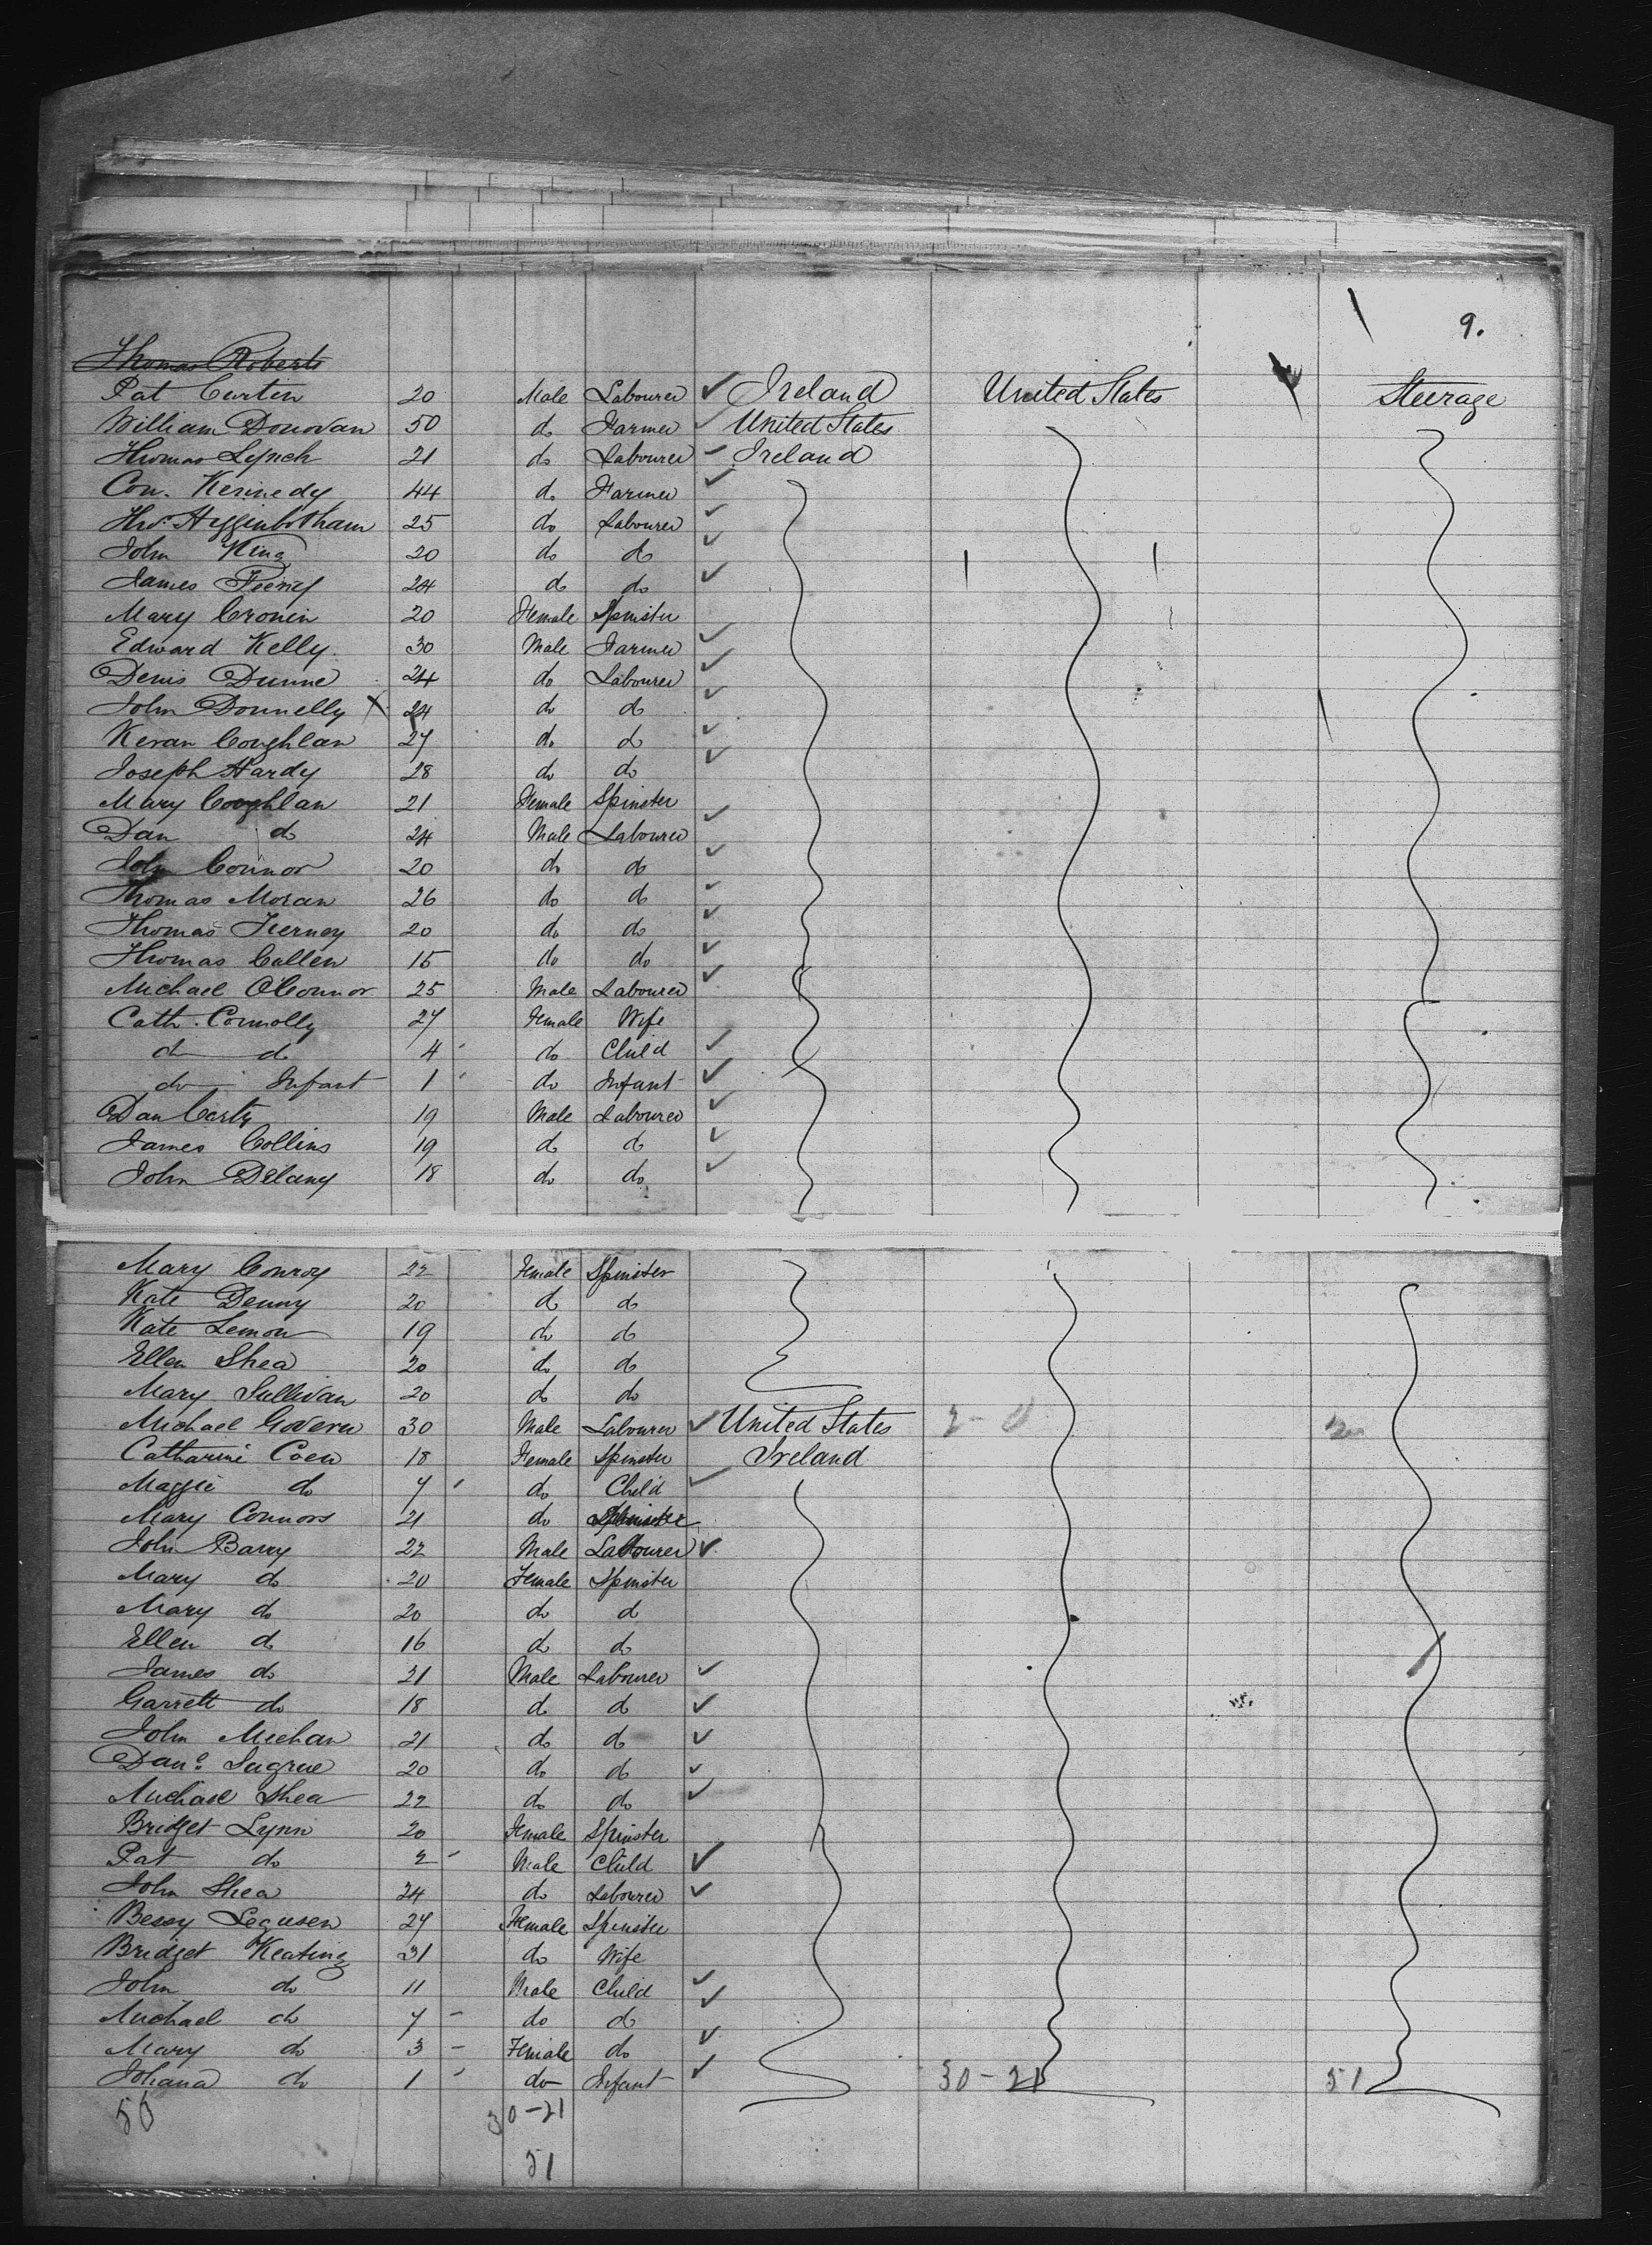 9.
Thomas Roberts
Pat Curten 20 Male Labourer ✓ Ireland United States Steerage
William Donovan 50 do Farmer ✓ United States
Thomas Lynch 21 do Labourer ✓ Ireland
Con. Kennedy 44 do Farmer ✓
Thos. Higginbotham 25 do Labourer ✓
John King 20 do do ✓
James 24 do do ✓
Mary Cronin 20 Female Spinster
Edward Kelly 30 Male Farmer ✓
Denis Dunne 24 do Labourer ✓
John Donnelly X 24 do do ✓
Keran Coughlan 27 do do ✓
Joseph Hardy 28 do do ✓
Mary Coughlan 21 Female Spinster
Dan do 24 Male Labourer ✓
John Connor 20 do do ✓
Thomas Moran 26 do do ✓
Thomas Tierney 20 do do ✓
Thomas Cullen 15 do do ✓
Michael O'Connor 25 Male Labourer ✓
Cath. Connolly 27 Female Wife
do do 4 do Child ✓
do Infant 1 do Infant ✓
Dan Carty 19 Male Labourer ✓
James Collins 19 do do ✓
John Delany 18 do do ✓
Mary Conroy 22 Female Spinster
Kate Denny 20 do do
Kate Lemon 19 do do
Ellen Shea 20 do do
Mary Sullivan 20 do do
Michael Govern 30 Male Labourer ✓ United States
Catharine Coen 18 Female Spinster Ireland
Maggie do 7 do Child ✓
Mary Connors 21 do Spinster
John Barry 22 Male Labourer ✓
Mary do 20 Female Spinster
Mary do 20 do do
Ellen do 16 do do
James do 21 Male Labourer ✓
Garrett do 18 do do ✓
John Meehan 21 do do ✓
Danl. Sugrue 20 do do ✓
Michael Shea 22 do do ✓
Bridget Lynn 20 Female Spinster
Pat do 2 Male Child ✓
John Shea 24 do Labourer ✓
Bessy 27 Female Spinster
Bridget Keating 31 do Wife
John do 11 Male Child ✓
Michael do 7 do do ✓
Mary do 3 Female do ✓
Johana do 1 do Infant ✓ 30-21 51
50 30-21
51